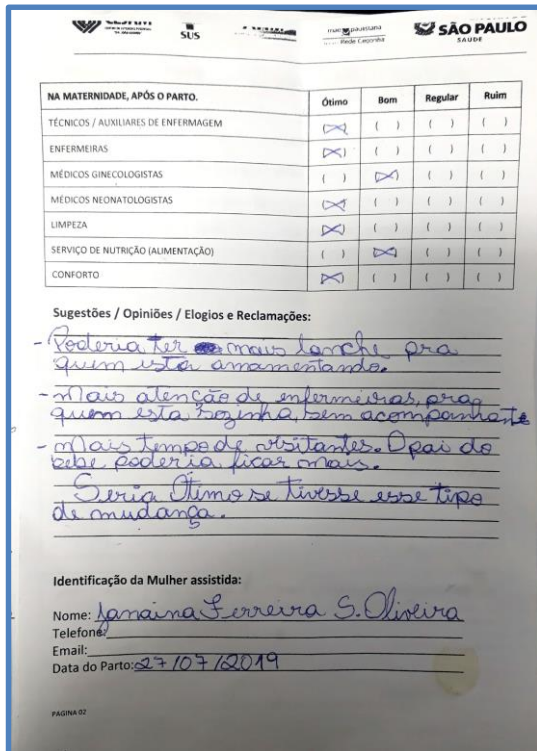 SUS
mãe paulistana
Rede Cegonha
SÃO PAULO
SAÚDE
NA MATERNIDADE, APÓS O PARTO. Ótimo Bom Regular Ruim
TÉCNICOS / AUXILIARES DE ENFERMAGEM (X) ( ) ( ) ( )
ENFERMEIRAS (X) ( ) ( ) ( )
MÉDICOS GINECOLOGISTAS ( ) (X) ( ) ( )
MÉDICOS NEONATOLOGISTAS (X) ( ) ( ) ( )
LIMPEZA (X) ( ) ( ) ( )
SERVIÇO DE NUTRIÇÃO (ALIMENTAÇÃO) ( ) (X) ( ) ( )
CONFORTO (X) ( ) ( ) ( )
Sugestões / Opiniões / Elogios e Reclamações:
- Poderia ter mais lanche pra
quem esta amamentando.
- Mais atenção de enfermeiras, pra
quem esta sozinha, sem acompanhate
- Mais tempo de visitantes. O pai do
bebe poderia ficar mais.
Seria Ótimo se tivesse esse tipo
de mudança.
Identificação da Mulher assistida:
Nome: Janaina Ferreira S. Oliveira
Telefone:
Email:
Data do Parto: 27/07/2019
PAGINA 02